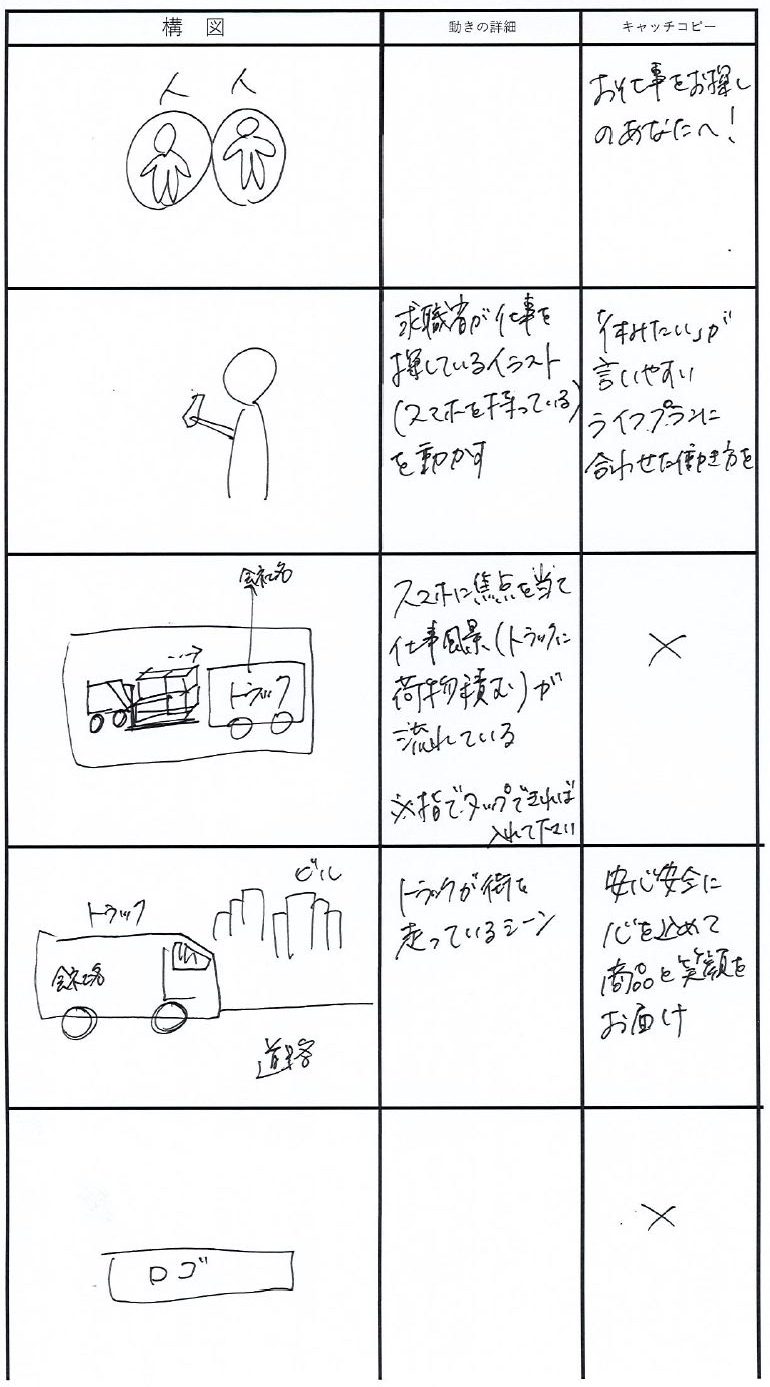 構図
動きの詳細
キャッチコピー
人 人
お仕事をお探し
のあなたへ!
求職者が仕事を
探しているイラスト
(スマホを持っている)
を動かす
「休みたい」が
言いやすい
ライフプランに
合わせた働き方を
会社名
トラック
スマホに焦点を当て
仕事風景(トラックに
荷物積む)が
流れている
※指でタップできれば
入れて下さい
×
トラック
ビル
会社名
道路
トラックが街を
走っているシーン
安心安全に
心を込めて
商品と笑顔を
お届け
ロゴ
×